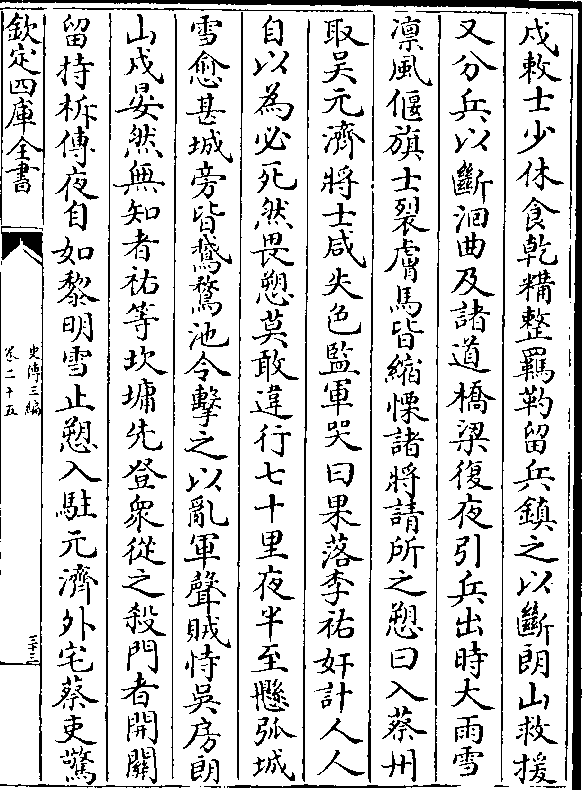 戍敕士少休食乾糒整羈靮留兵鎮之以斷朗山救援
又分兵以斷洄曲及諸道橋梁復夜引兵出時大雨雪
凛風偃旗士裂膚馬皆縮慄諸將請所之愬曰入蔡州
取吴元濟將士咸失色監軍哭曰果落李祐奸計人人
自以為必死然畏愬莫敢違行七十里夜半至懸弧城
雪愈甚城旁皆鵞鶩池令擊之以亂軍聲賊恃吳房朗
山戍晏然無知者祐等坎墉先登衆從之殺門者開關
留持柝傳夜自如黎明雪止愬入駐元濟外宅蔡吏驚
欽定四庫全書
史傳三編
卷二十五
三十三